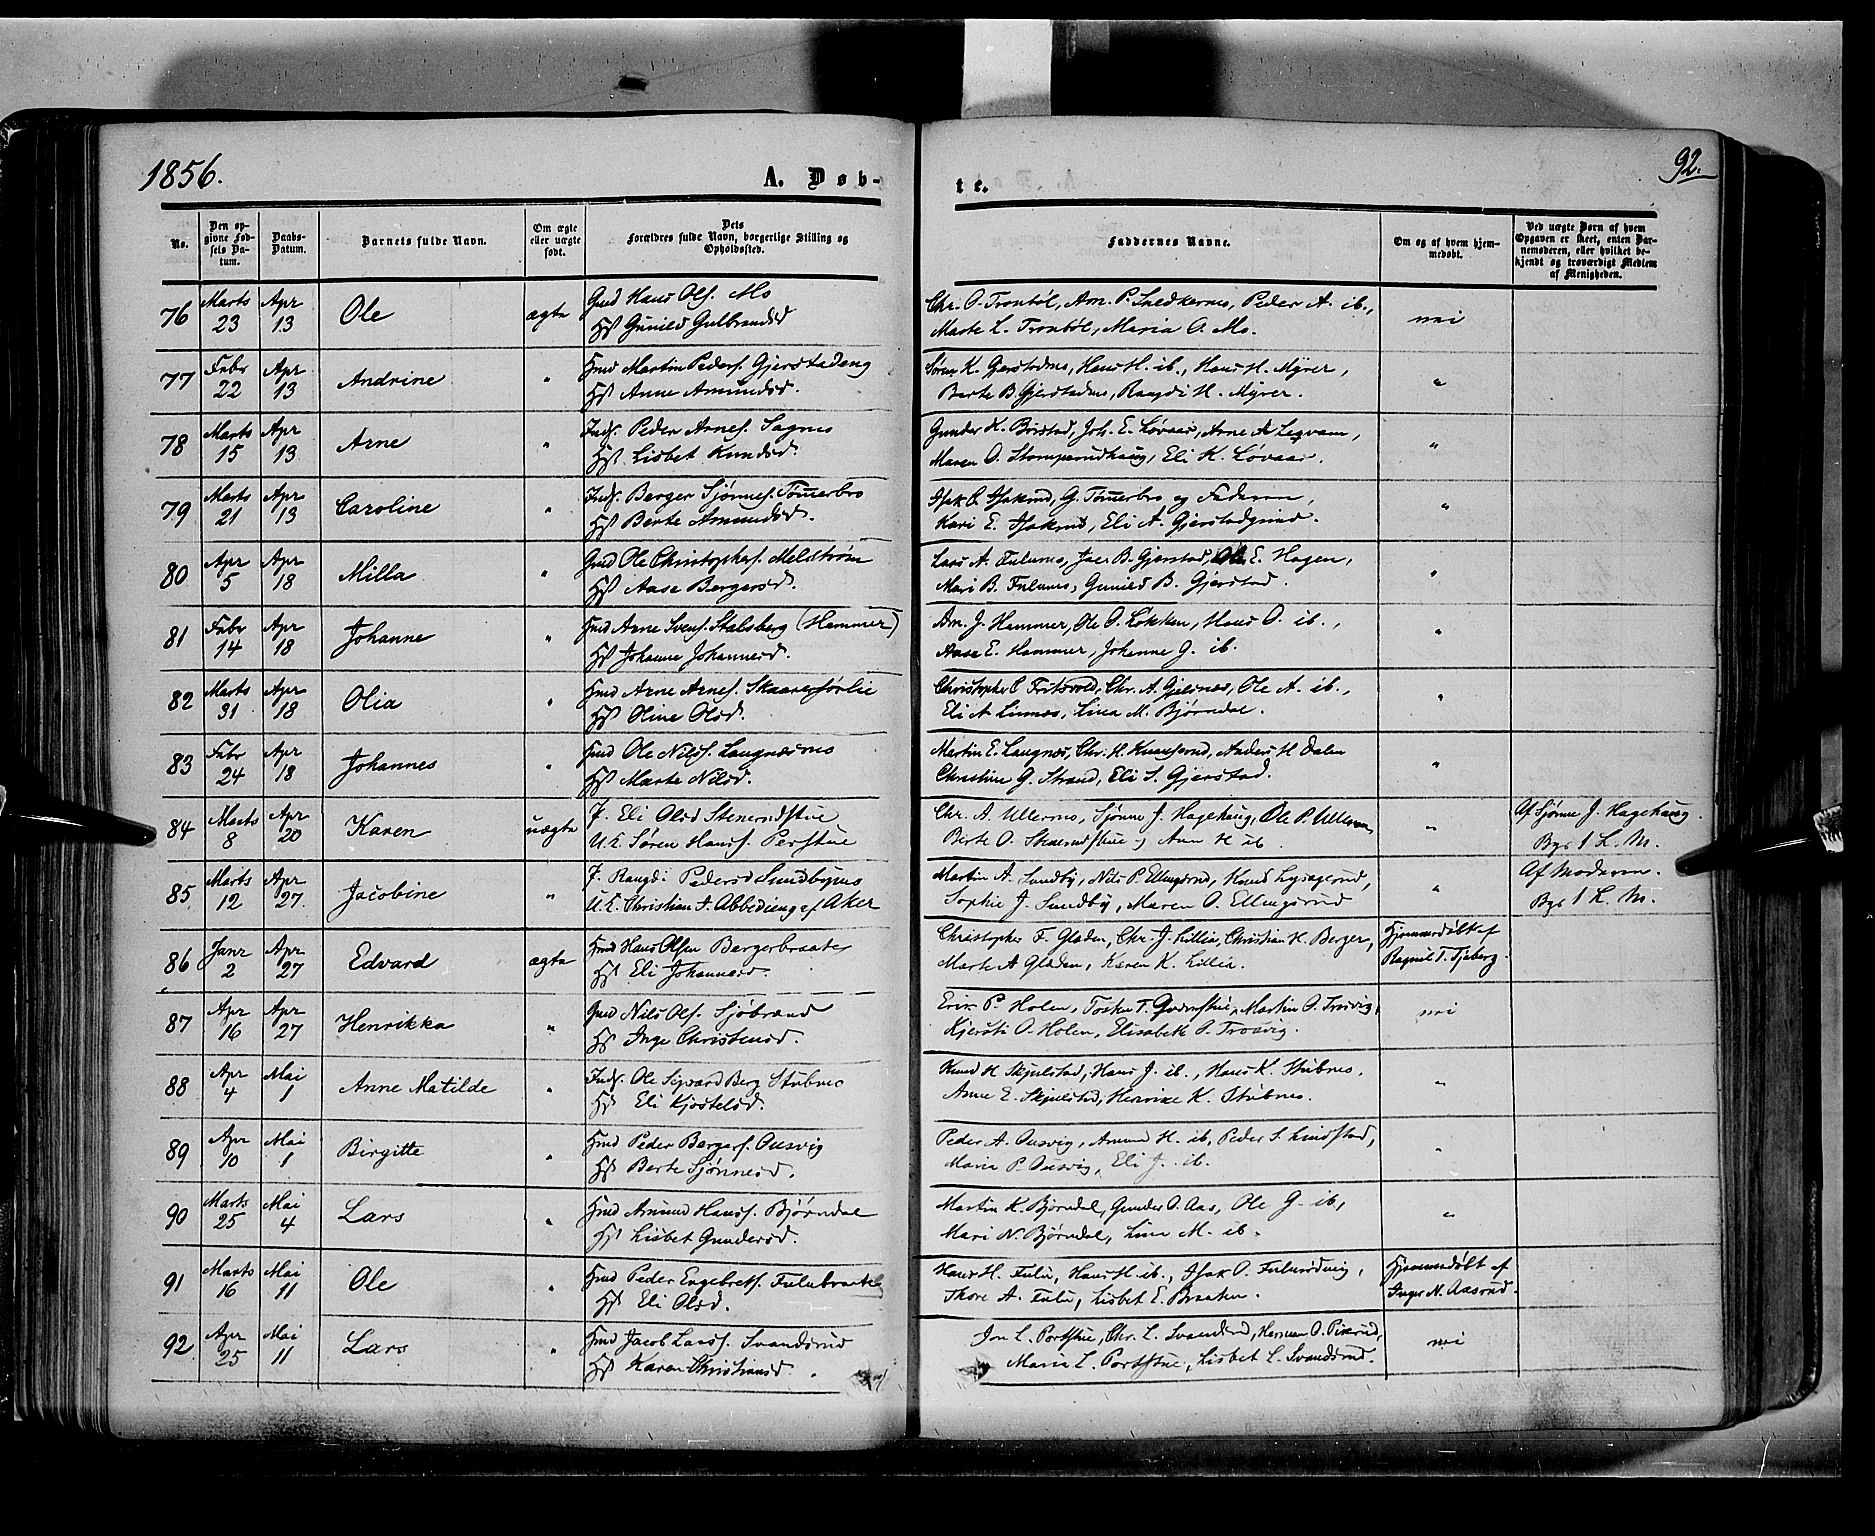 1856.
A. Døb-
te.
92.
No.
Den op-
givne Fød-
sels Da-
tum.
Daabs-
Datum.
Barnets fulde Navn.
Om ægte
eller uægte
født.
Dets
Forældres fulde Navn, borgerlige Stilling og
Opholdssted.
Faddernes Navne.
Om og af hvem hjem-
medøbt.
Ved uægte Børn af hvem
Opgaven er skeet, enten Bar-
nemoderen, eller hvilket be-
kjendt og troværdigt Medlem
af Menigheden.
76 Marts 23 Apr 13 Ole ægte Gmd Hans Ols. Mo
Hst Gunild Gulbrandsd
Chr. O. Trontøl, Am. P. Snedkernes, Peder A. ib.,
Marte L. Trontøl, Maria O. Mo. nei
77 Febr 22 Apr 13 Andrine " Hmd Martin Peders. Gjerstadeng
Hst Anne Amundsd.
Søren K. Gjerstadnes, Hans H. ib., Hans H. Myrer,
Berte B. Gjerstadnes, Rangdi H. Myrer. "
78 Marts 15 Apr 13 Arne " Inds. Peder Arnes. Sagnes
Hst. Lisbet Knudsd.
Gunder K. Børstad, Joh. E. Løvaas, Arne A. Leqvam,
Maren O. Stomperudhaug, Eli K. Løvaas. "
79 Marts 21 Apr 13 Caroline " Inds. Berger Sjønnes. Tømerbro
Hst Berte Amundsd.
G. Tømerbro og Faderen,
Kari E. Eli A. Gjerstadgrind. "
80 Apr 5 Apr 18 Milla " Gmd Ole Christophs. Melstrøm
Hst Aase Bergersd.
Lars A. Fulunes, Joer B. Gjerstad, Ole E. Hagen,
Mari B. Fulunes, Gunild B. Gjerstad. "
81 Febr 14 Apr 18 Johanne " Hmd Arne Svens. Stalsberg (Hammer)
Hst Johanne Johannesd.
Am. J. Hammer, Ole O. Løkken, Hans O. ib.,
Aase E. Hammer, Johanne G. ib. "
82 Marts 31 Apr 18 Olia " Hmd Arne Arnes. Skaaresørlie
Hst Oline Olsd.
Christopher C. Fritsvold, Chr. A. Gjelsnes, Ole A. ib.,
Eli A. Linnes, Lina M. Bjørndal. "
83 Febr 24 Apr 18 Johannes " Hmd Ole Nilss. Laugnesnes
Hst Marte Nilsd.
Martin E. Laugnes, Chr. H. Knapserud, Anders H. Dalen
Christine G. Strand, Eli S. Gjerstad. "
84 Marts 8 Apr 20 Karen uægte P. Eli Olsd Stenerudstue
U.K. Søren Hanss. Perstue
Chr. A. Ullernes, Sjønne J. Hagehaug, Ole P. Ullern,
Berte O. Stenerudstue og Anne H ib. "
Af Sjønne J. Hagehaug.
Bygs. 1 L. M.
85 Marts 12 Apr 27 Jacobine " P. Rangdi Pedersd Sundbynes
U.K. Christian J. Abbedieng af Aker
Martin A. Sundby, Nils P. Ellingsrud, Knud Lysagerud,
Sophie J. Sundby, Maren O. Ellingsrud "
Af Moderen.
Bygs. 1 L. M.
86 Janr 2 Apr 27 Edvard ægte Hmd Hans Olsen Bergerbraaten
Hst Eli Johannesd.
Christopher F. Gladen, Chr. J. Lillia, Christian H. Berger,
Marte A Gladen, Karen K. Lillia.
Hjemmedøbt af
Ragnil T. Tjeberg.
87 Apr 16 Apr 27 Henrikka " Gmd Nils Ols. Sjøbrænd
Hst Inge Christensd.
Erik P. Holen, Martin O. Trosvig,
Kjersti O. Holen, Elisabeth P. Trosvig. nei
88 Apr 4 Mai 1 Anne Matilde " Inds. Ole Sigvard Berg Stubnes
Hst Eli Kjostelsd.
Knud H. Skjulstad, Hans J. ib., Hans K. Stubnes,
Anne E. Skjulstad, Henrine K. Stubnes. "
89 Apr 10 Mai 1 Birgitte " Hmd Peder Bergers. Ousvig
Hst Berte Sjønnesd.
Peder A. Ousvig, Amund H. ib, Peder S. Lindstad,
Maria P. Ousvig, Eli J. ib. "
90 Marts 25 Mai 4 Lars " Hmd Amund Hanss. Bjørndal
Hst Lisbet Gundersd.
Martin K. Bjørndal, Gunder O. Aas, Ole G. ib,
Mari N. Bjørndal, Lina M. ib. "
91 Marts 16 Mai 11 Ole " Hmd Peder Engebrets. Fulubraaten
Hst Eli Olsd.
Hans H. Fulu, Hans H. ib., Isak O. Fulurødning,
Thore A. Fulu, Lisbet E. Braaten.
Hjemmedøbt af
Inger N. Aasrud.
92 Apr 25 Mai 11 Lars " Hmd Jacob Larss. Svandsrud
Hst Karen Christiansd.
Jon L. Portstue, Chr. L. Svandsrud, Herman O. Piserud,
Maria L. Portstue, Lisbet L. Svandsrud. nei